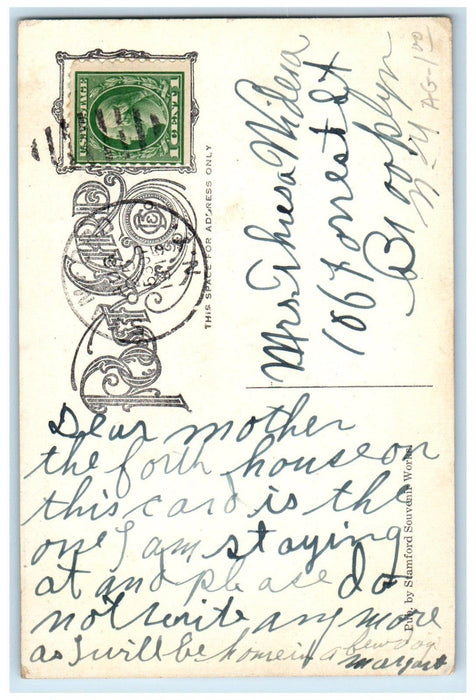 U.S. POSTAGE
1 CENT 1
POST CARD
THIS SPACE FOR ADDRESS ONLY
Mrs Theresa Widera
106 Forrest St
Brooplyn
N-Y
AG-1⁰⁰
Dear mother
the forth house on
this card is the
one I am staying
at and please do
not write any more
as I will be home in a few day
margart
Pub. by Stamford Souvenir Works.